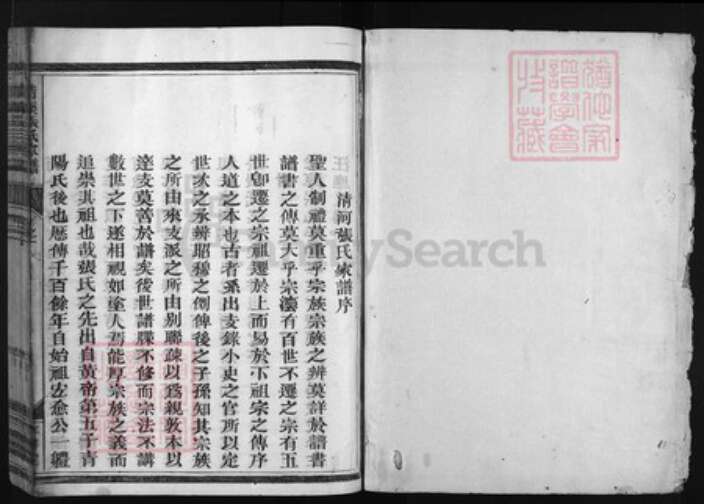 清河張氏家譜序
聖人制禮莫重乎宗族宗族之辨莫詳於譜書
譜書之傳莫大乎宗法有百世不遷之宗有五
世卽遷之宗祖遷於上而易於下祖宗之傳序
人道之本也古者系出支錄小史之官所以定
世次之承辨昭穆之倒俾後之子孫知其宗族
之所由來支派之所由别聯疎以爲親敦本以
達支莫善於譜矣後世譜牒不修而宗法不講
數世之下遂相視如塗人焉能厚宗族之義而
追崇其祖也哉張氏之先出自黃帝第五子青
陽氏後也歷傳千百餘年自始祖公一體
FamilySearch